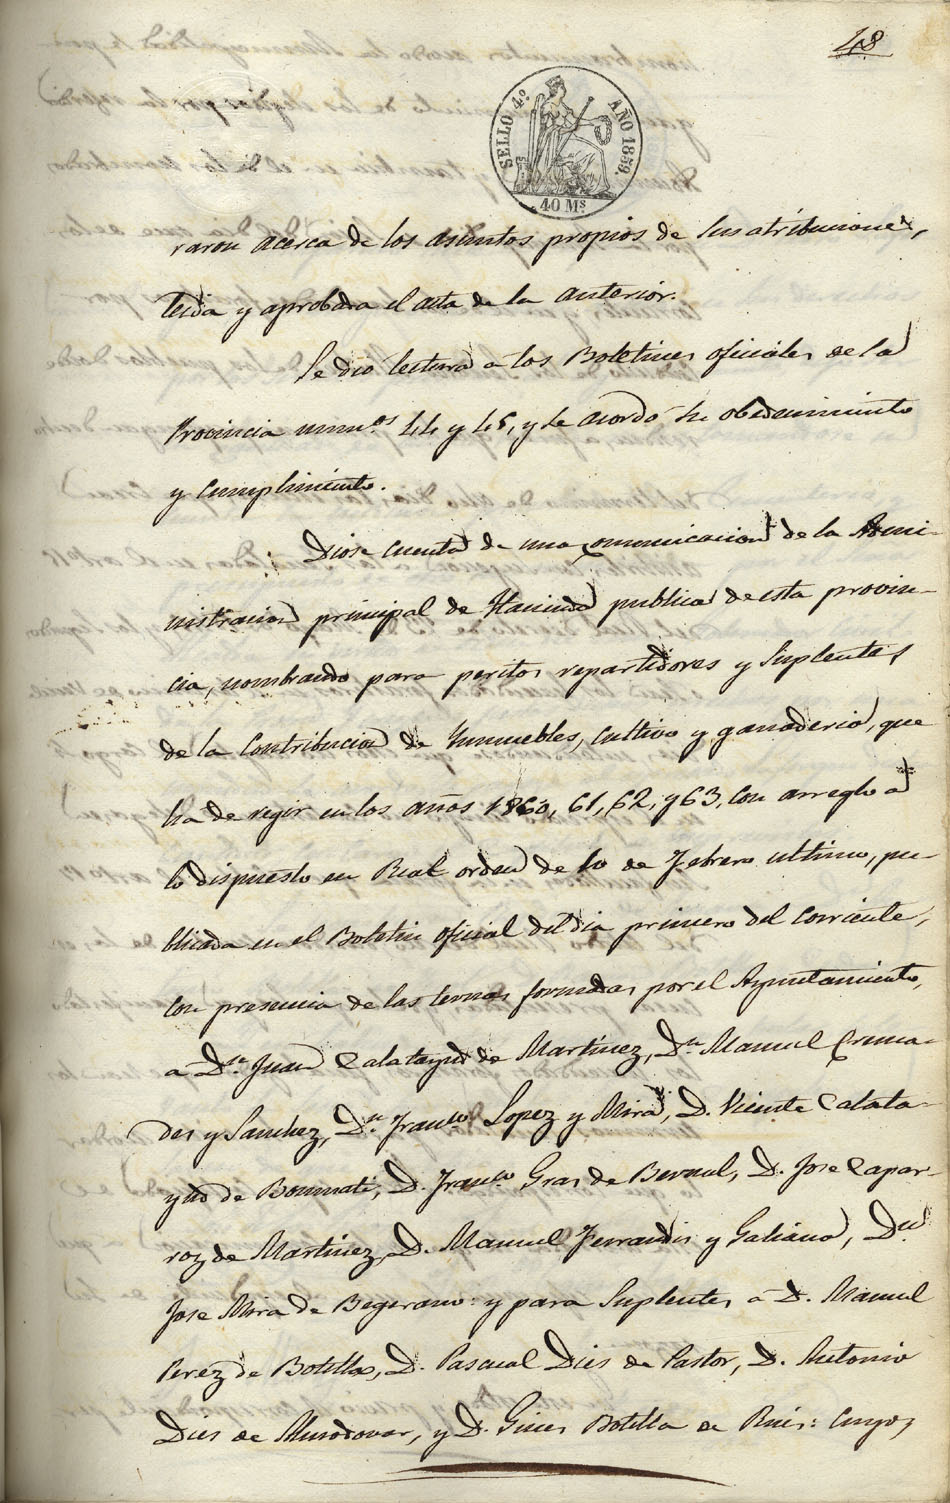 48
SELLO 4.º AÑO 1859.
40 Ms
raron acerca de los asuntos propios de sus atribuciones,
leida y aprobada el acta de la anterior.
Se dio lectura a los Boletines oficiales de la
Provincia numos 44 y 45, y se acordó su obedecimiento
y cumplimiento.
Diose cuenta de una comunicacion de la Admi-
nistracion principal de Hacienda publica de esta provin-
cia, nombrando para peritos repartidores y Suplentes
de la Contribucion de Ynmuebles, cultivo y ganaderia, que
ha de regir en los años 1860, 61, 62, y 63, con arreglo a
lo dispuesto en Real orden de 10 de Febrero ultimo, pu-
blicada en el Boletin oficial del dia primero del corriente,
con presencia de las ternas formadas por el Ayuntamiento,
a Dn Juan Calatayud de Martinez, Dn Manuel Crema-
des y Sanchez, Dn Franco Lopez y Mira, D. Vicente Calata-
yud de Bonmati, D. Franco Gras de Bernal, D. Jose Capar-
roz de Martinez, D. Manuel Ferrandis y Galiano, Dn
Jose Mira de Begerano: y para Suplentes a D. Manuel
Perez de Botilla, D. Pascual Dies de Pastor, D. Antonio
Dies de Almodovar, y D. Gines Botilla de Ruis: cuyos